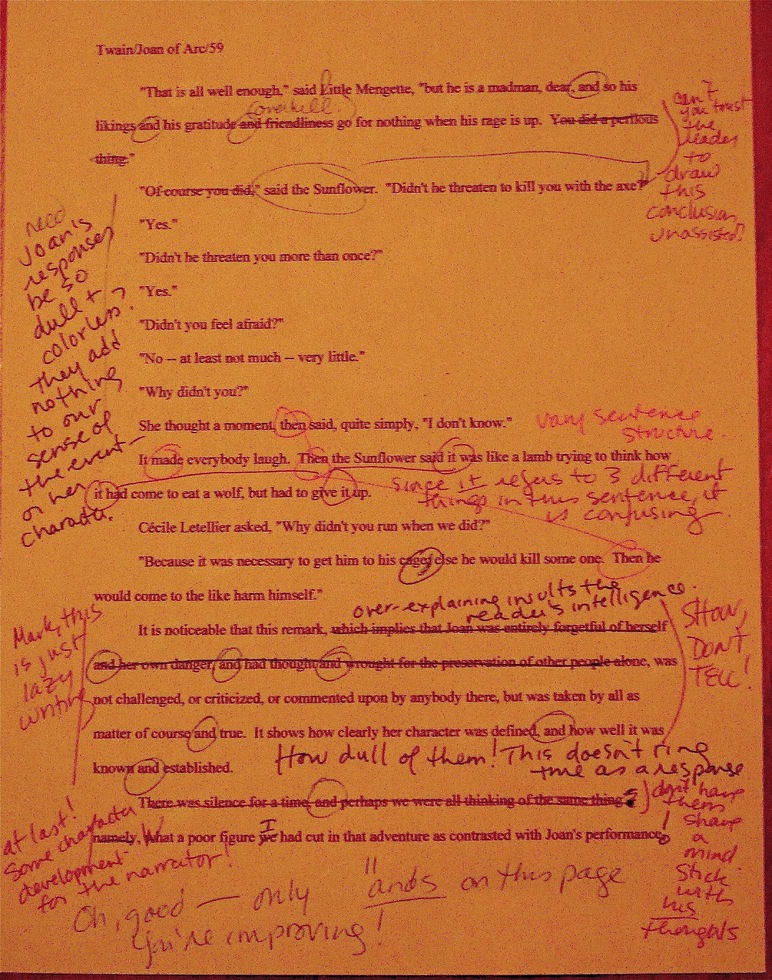 Twain/Joan of Arc/59
"That is all well enough," said Little Mengette, "but he is a madman, dear, and so his
overkill.
likings and his gratitude and friendliness go for nothing when his rage is up. You did a perilous
thing."
can't
you trust
the
reader
to
draw
this
conclusion
unassisted?
"Of course you did," said the Sunflower. "Didn't he threaten to kill you with the axe?"
"Yes."
"Didn't he threaten you more than once?"
"Yes."
"Didn't you feel afraid?"
"No -- at least not much -- very little."
"Why didn't you?"
She thought a moment, then said, quite simply, "I don't know."
need
Joan's
responses
be so
dull +
colorless?
they add
nothing
to our
sense of
the event
or her
character.
vary sentence
structure.
It made everybody laugh. Then the Sunflower said it was like a lamb trying to think how
it had come to eat a wolf, but had to give it up.
since it refers to 3 different
things in this sentence, it
is confusing.
Cécile Letellier asked, "Why didn't you run when we did?"
"Because it was necessary to get him to his cage; else he would kill some one. Then he
would come to the like harm himself."
over-explaining insults the
reader's intelligence.
It is noticeable that this remark, which implies that Joan was entirely forgetful of herself
and her own danger, and had thought and wrought for the preservation of other people alone, was
not challenged, or criticized, or commented upon by anybody there, but was taken by all as
matter of course and true. It shows how clearly her character was defined, and how well it was
known and established.
Mark, this
is just
lazy
writing
SHOW,
DON'T
TELL!
How dull of them! This doesn't ring
true as a response
There was silence for a time, and perhaps we were all thinking of the same thing
I
namely, what a poor figure we had cut in that adventure as contrasted with Joan's performance
!
at last!
Some character
development
for the narrator!
don't have
them
share
a
mind.
Stick
with
his
thoughts
Oh, good — only 11 ands on this page
You're improving!